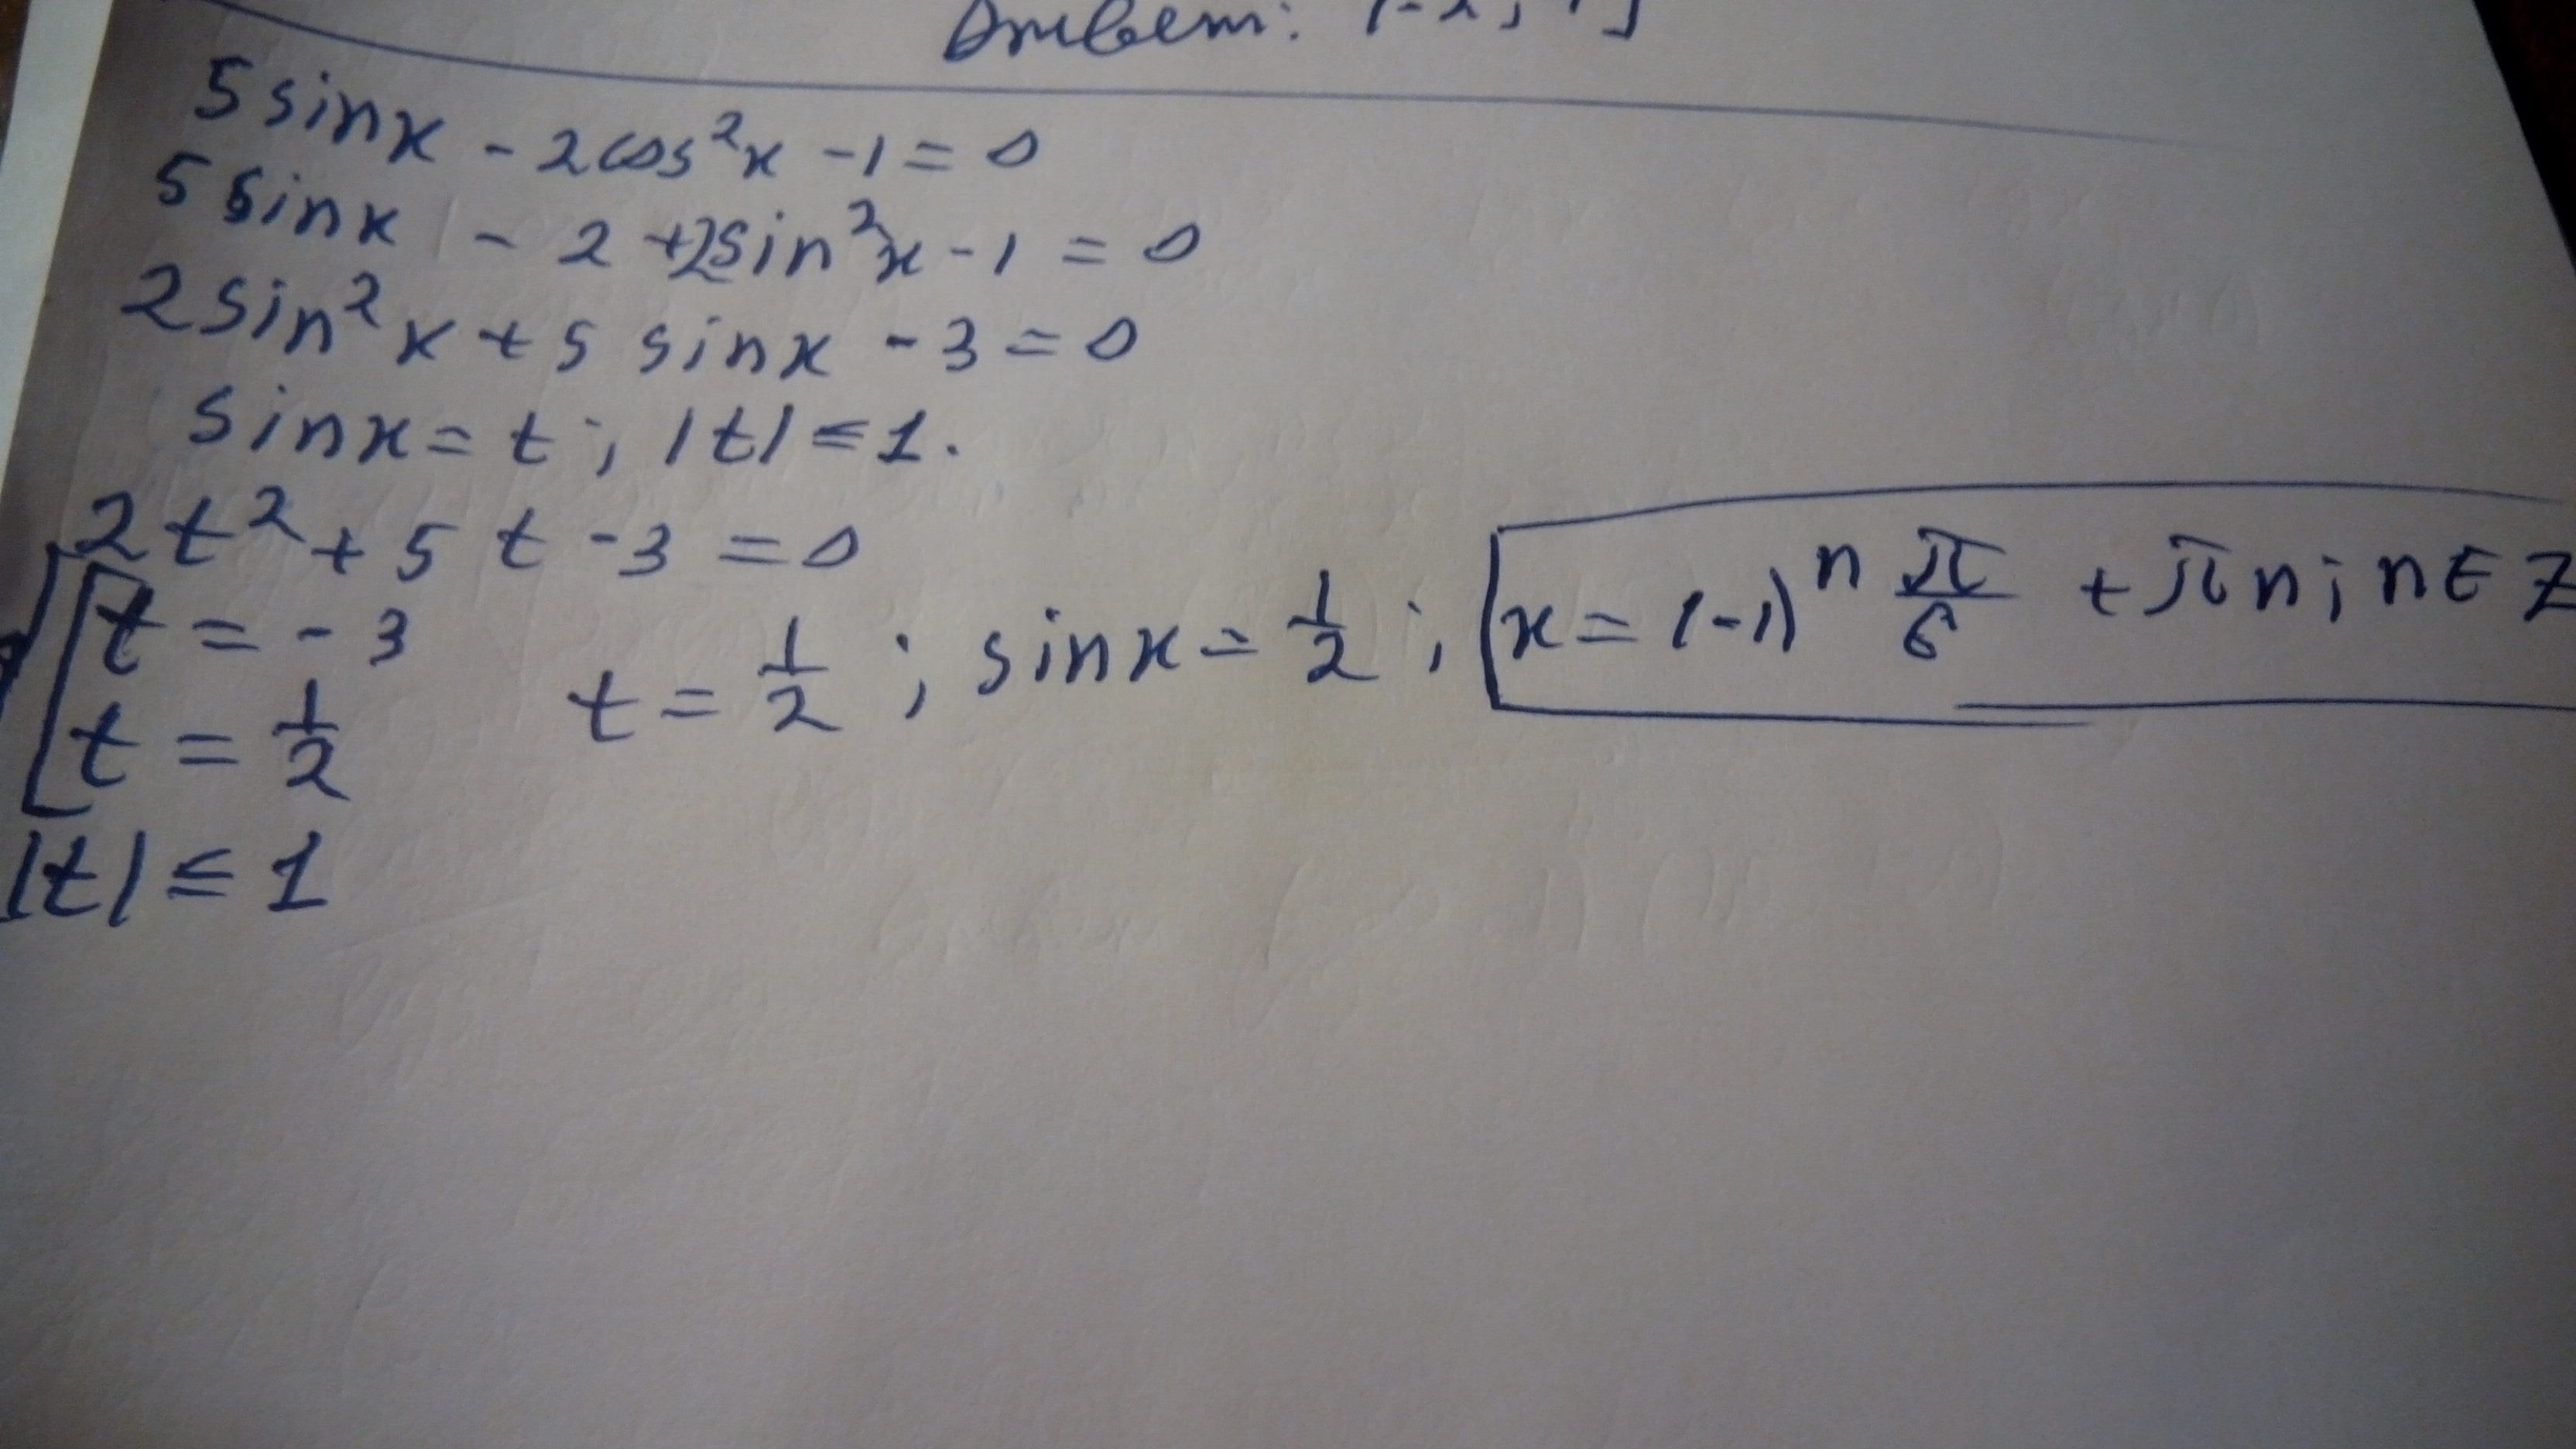 Ответ:
5 sin x - 2 cos²x - 1 = 0
5 sin x - 2 + 2 sin²x - 1 = 0
2 sin²x + 5 sin x - 3 = 0
sin x = t ; |t| ≤ 1.
2t² + 5t - 3 = 0
t = - 3
t = 1/2
|t| ≤ 1
t = 1/2 ; sin x = 1/2 ; x = (-1)ⁿ π/6 + πn ; n ∈ Z